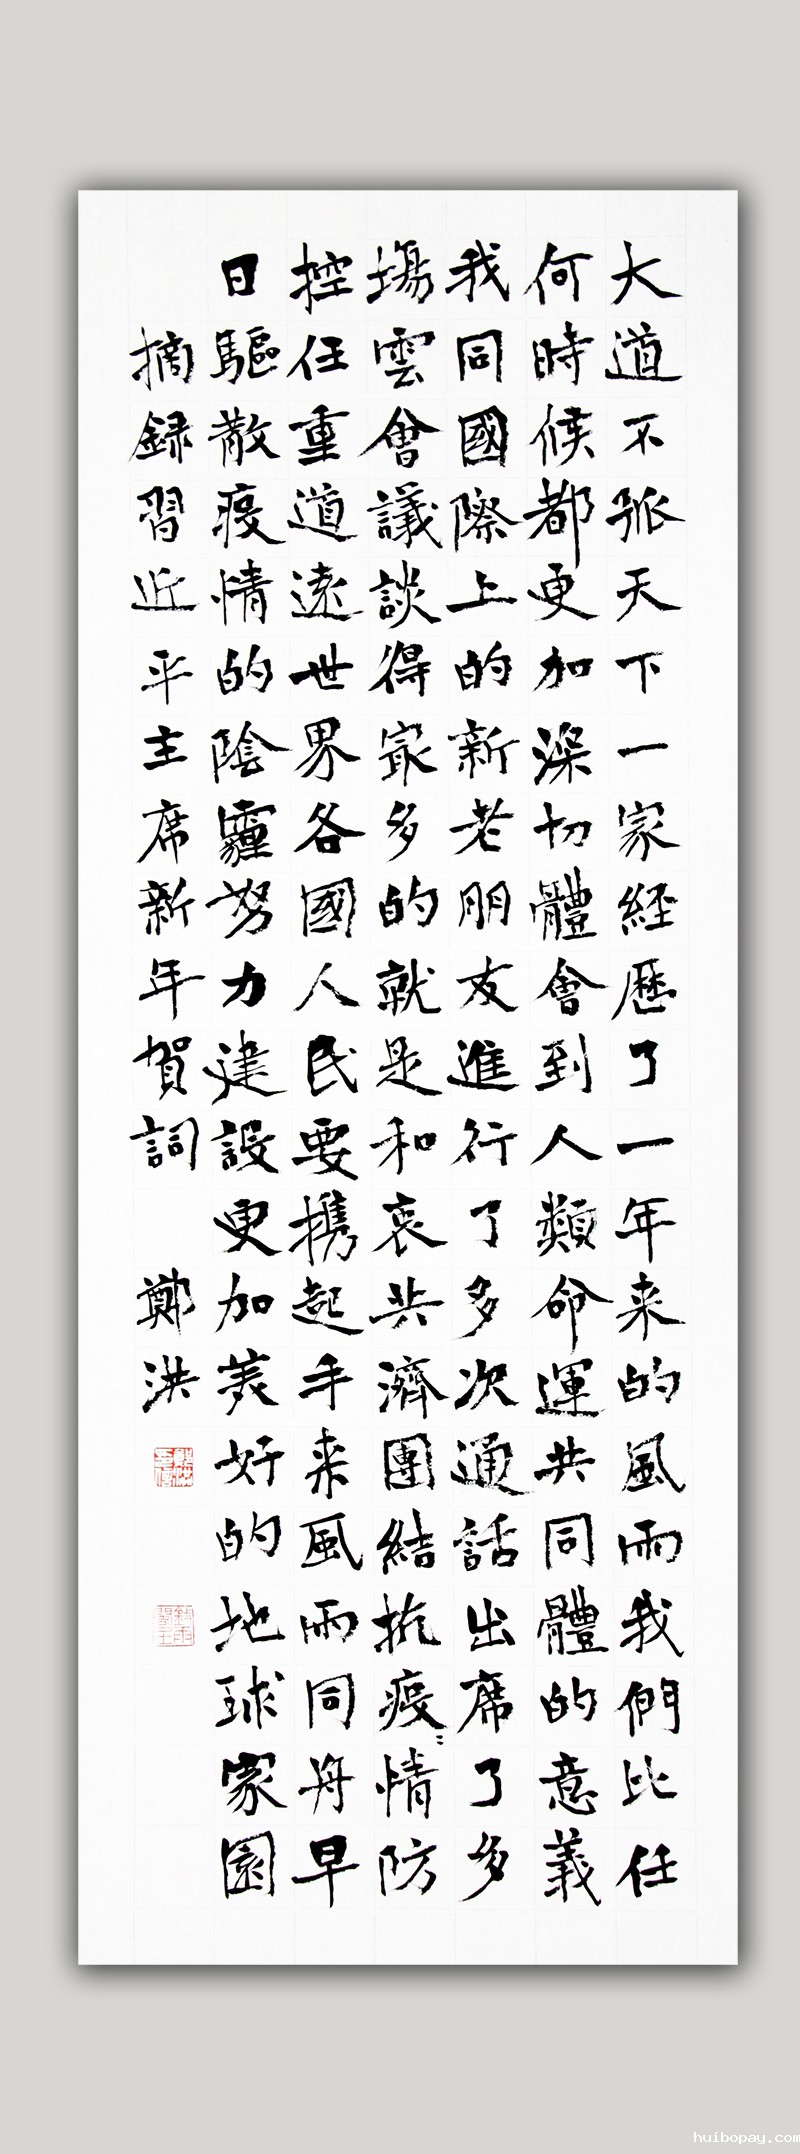 大道不孤天下一家經歷了一年来的風雨我們比任
何時候都更加深切體會到人類命運共同體的意義
我同國際上的新老朋友進行了多次通話出席了多
場雲會議談得冣多的就是和衷共濟團結抗疫〻情防
控任重道遠世界各國人民要携起手来風雨同舟早
日驅散疫情的陰霾努力建設更加美好的地球家園
摘録習近平主席新年賀詞 鄭洪
huibopay.com